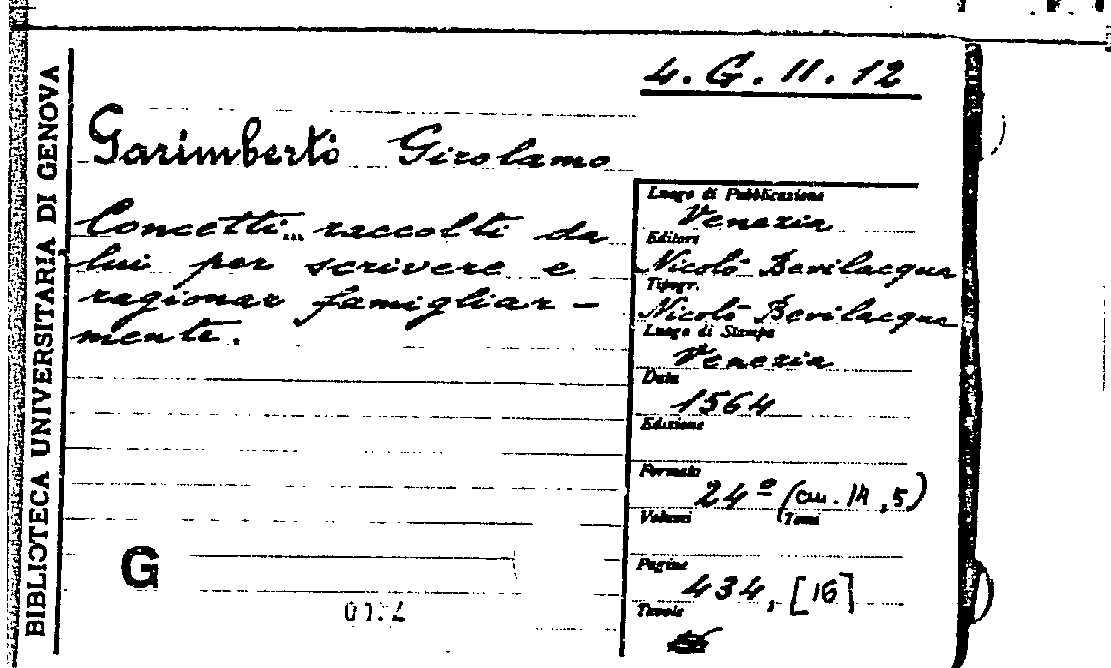 BIBLIOTECA UNIVERSITARIA DI GENOVA
4.G.11.12
Garimberto Girolamo
Concetti... raccolti da
lui per scrivere e
ragionar famigliar-
mente.
Luogo di Pubblicazione
Venezia
Editore
Nicolò Bevilacqua
Tipogr.
Nicolò Bevilacqua
Luogo di Stampa
Venezia
Data
1564
Edizione
Formato
24º (cm. 14,5)
Volumi Tomi
Pagine
434, [16]
Tavole
G